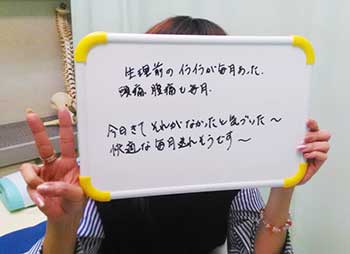 生理前のイライラが毎月あった.
頭痛 腹痛も毎月.
今日きて それがなかったと気づいた〜
快適な毎月送れそうです〜